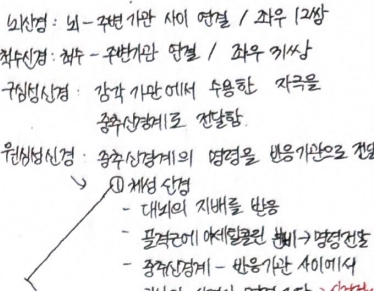 뇌신경: 뇌 - 주변 기관 사이 연결 / 좌우 12쌍
척수신경: 척수 - 주변기관 연결 / 좌우 31쌍
구심성신경: 감각 기관에서 수용한 자극을
중추신경계로 전달함.
원심성신경: 중추신경계의 명령을 반응기관으로 전달
① 체성 신경
- 대뇌의 지배를 반응
- 골격근에 아세틸콜린 분비 → 명령전달
- 중추신경계 - 반응기관 사이에서